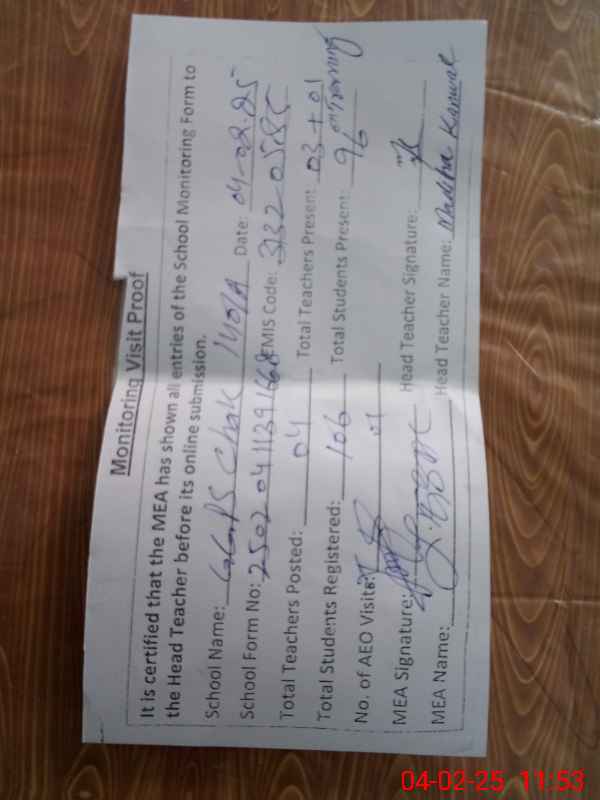 Monitoring Visit Proof
It is certified that the MEA has shown all entries of the School Monitoring Form to
the Head Teacher before its online submission.
School Name: GGPS Chak 140/A Date: 04-02-25
School Form No: EMIS Code: 3132 0585
Total Teachers Posted: 04 Total Teachers Present: 03 + 01 on Training
Total Students Registered: 106 Total Students Present: 96
No. of AEO Visits: 01
MEA Signature: Head Teacher Signature:
MEA Name: Head Teacher Name: Kanwal
04-02-25 11:53